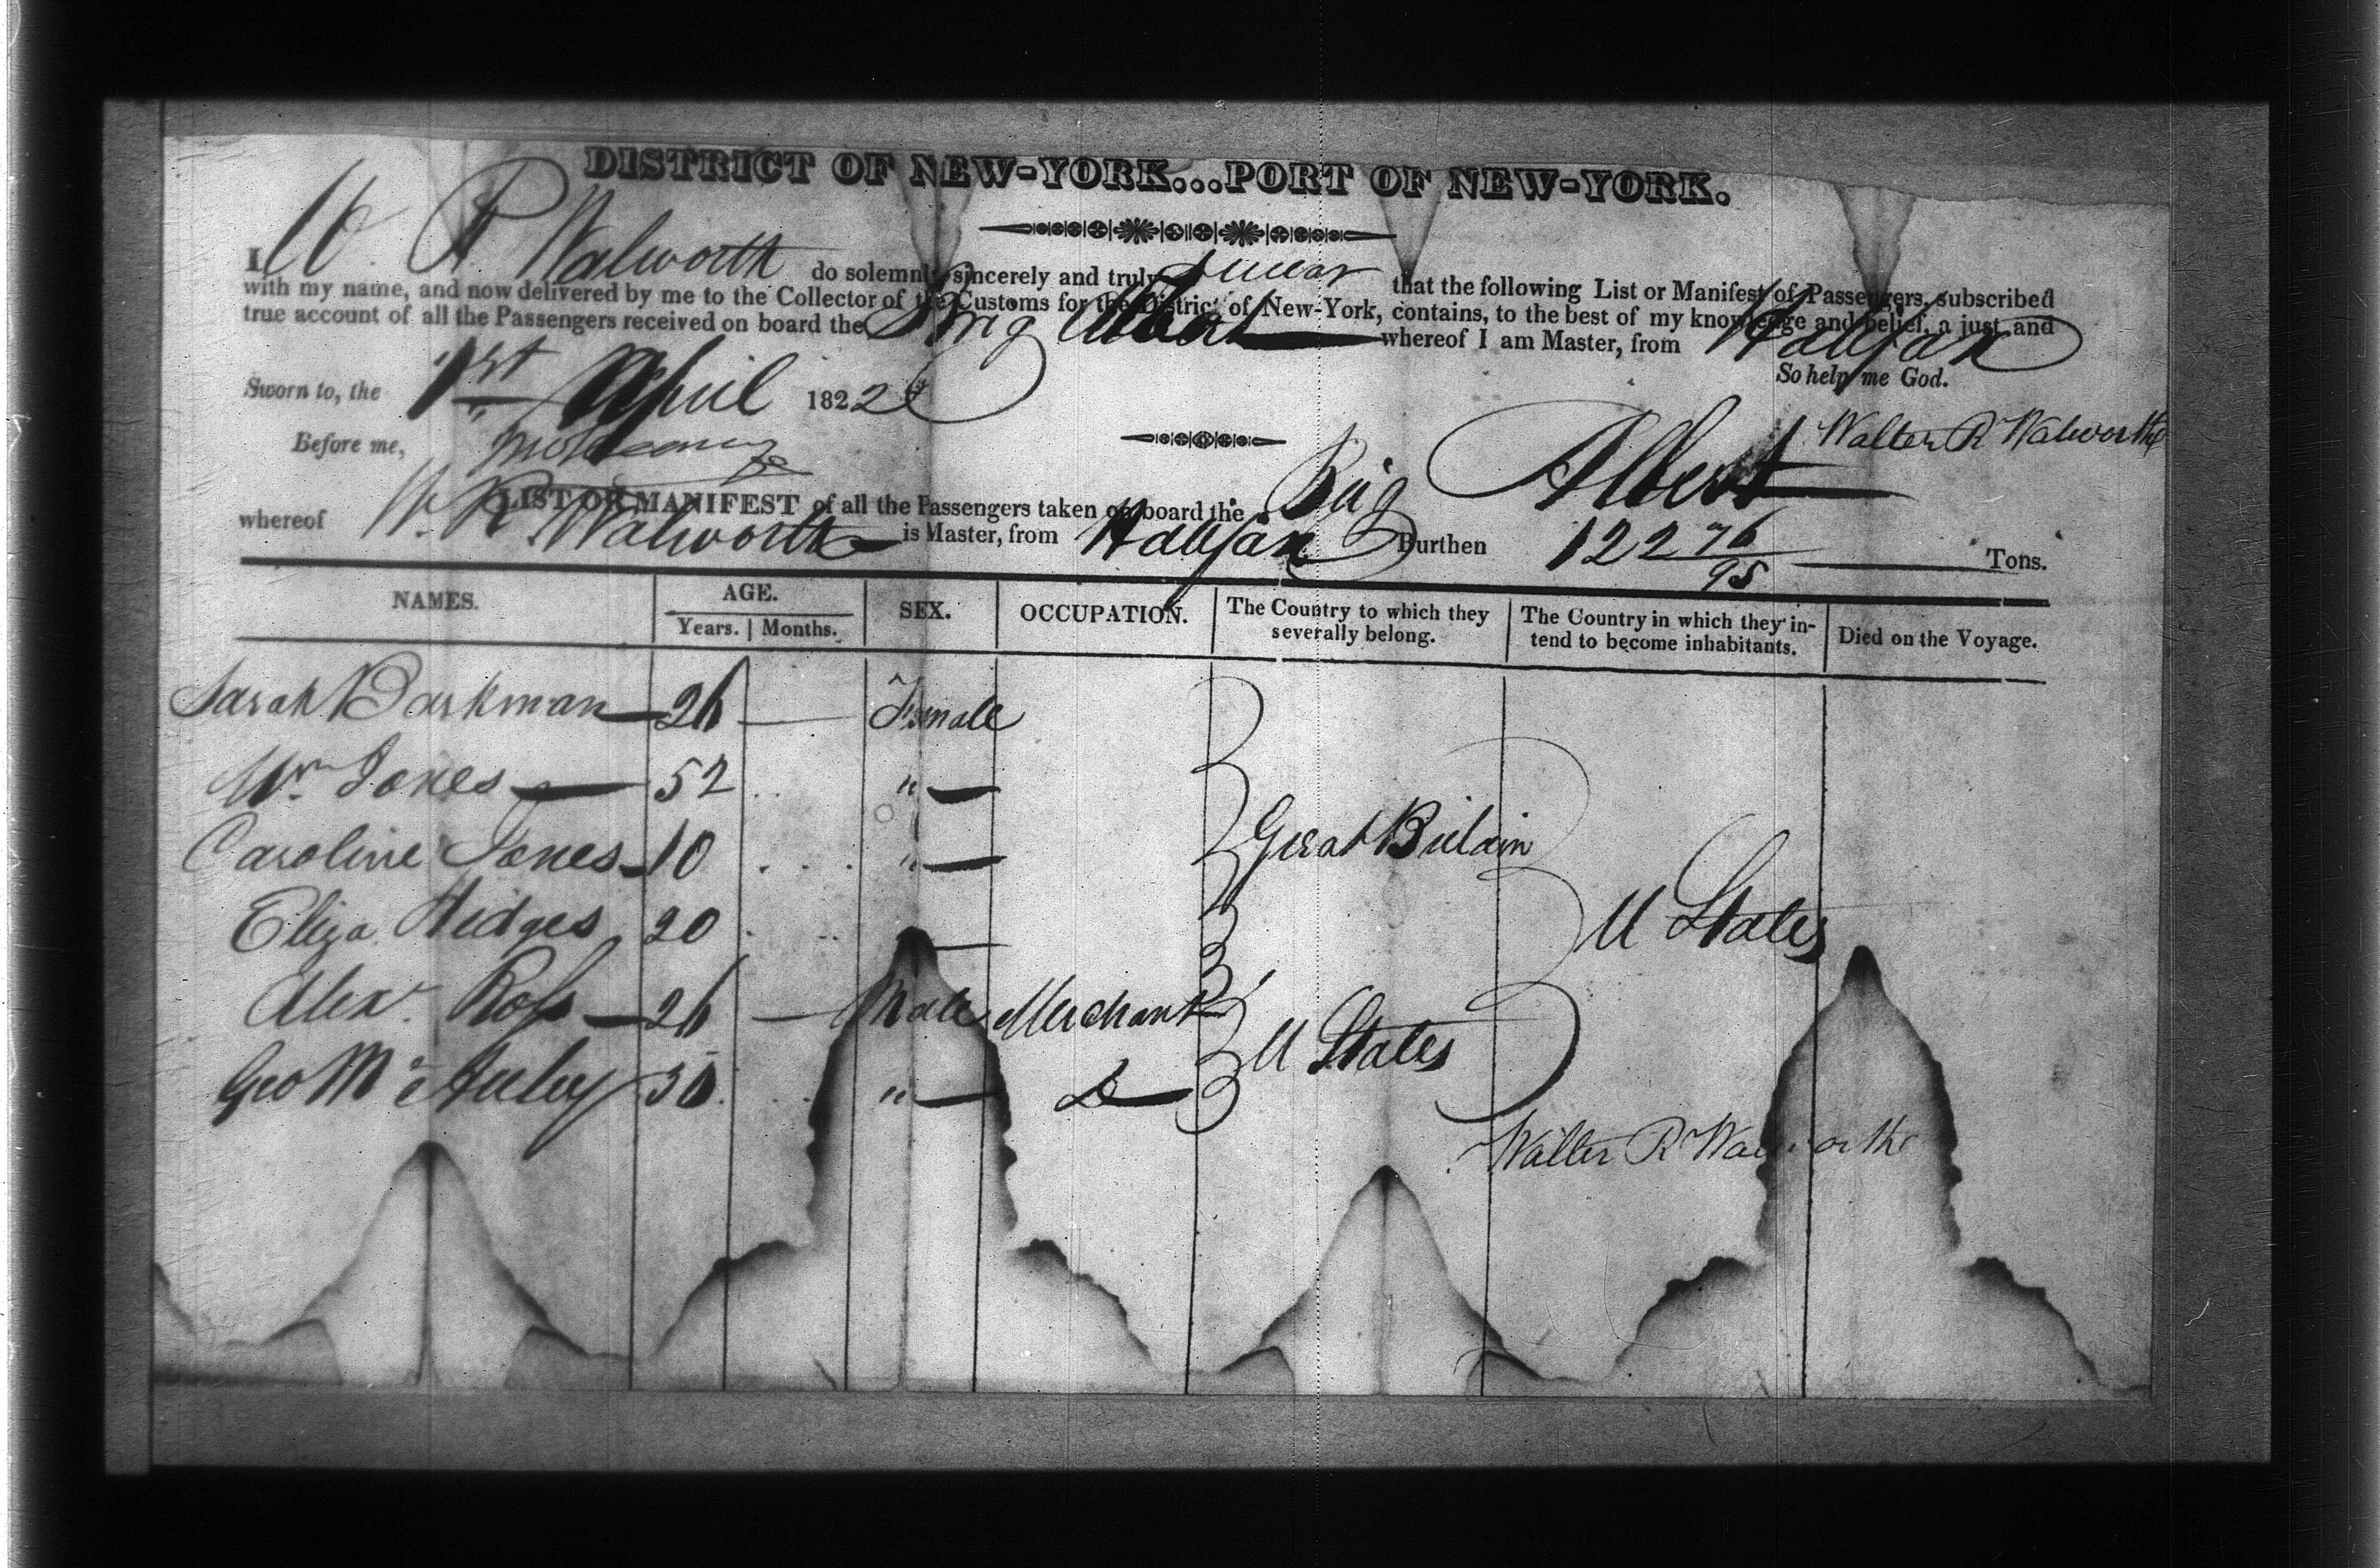 DISTRICT OF NEW-YORK...PORT OF NEW-YORK.
I W. R Walworth do solemnly, sincerely and truly swear that the following List or Manifest of Passengers, subscribed
with my name, and now delivered by me to the Collector of the Customs for the District of New-York, contains, to the best of my knowledge and belief, a just and
true account of all the Passengers received on board the Brig Albert whereof I am Master, from Halifax
Sworn to, the 1st April 1822 So help me God.
Before me, Walter R Walworth
LIST OR MANIFEST of all the Passengers taken on board the Brig Albert
whereof W. R. Walworth is Master, from Halifax Burthen 122 76/95 Tons.
NAMES. AGE. Years. Months. SEX. OCCUPATION. The Country to which they severally belong. The Country in which they intend to become inhabitants. Died on the Voyage.
Sarah Barkman 26 Female
Mrs Jones 52 "
Caroline Jones 10 " Great Britain
Eliza Hedges 20 U States
Alexr. Ross 26 Male Merchant
U States
Geo McAuley 30 " Do
Walter R Walworth